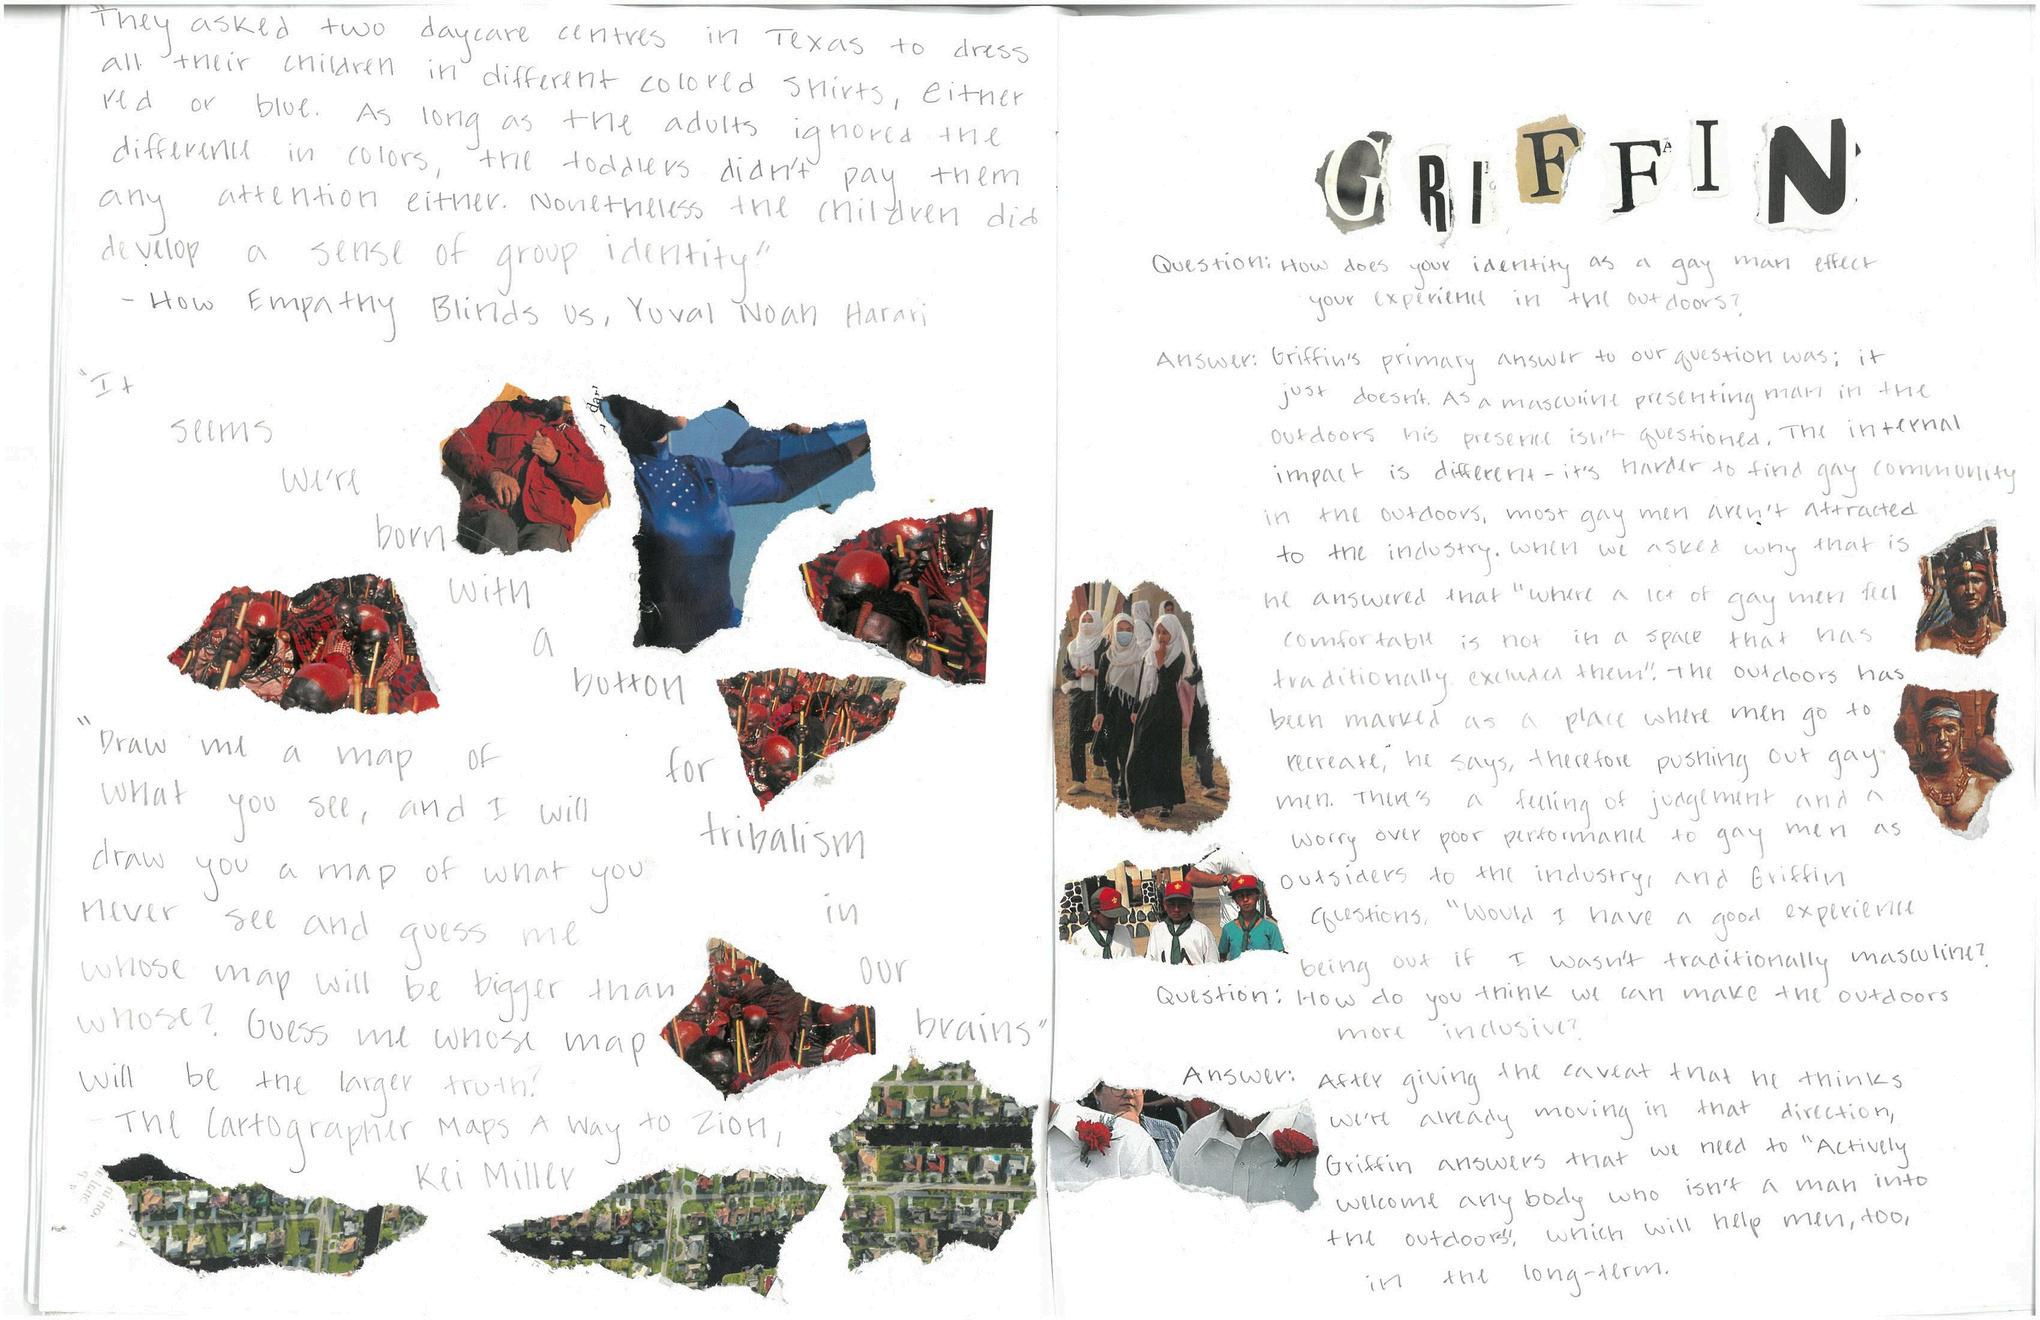 "They asked two daycare centres in Texas to dress
all their children in different colored shirts, either
red or blue. As long as the adults ignored the
difference in colors, the toddlers didn't pay them
any attention either. Nonetheless the children did
develop a sense of group identity"
- How Empathy Blinds us, Yuval Noah Harari
"It
seems
we're
born
with
a
button
for
tribalism
in
our
brains"
"Draw me a map of
what you see, and I will
draw you a map of what you
never see and guess me
whose map will be bigger than
whose? Guess me whose map
will be the larger truth?
- The Cartographer Maps A Way to Zion,
Kei Miller
GRIFFIN
Question: How does your identity as a gay man effect
your experience in the outdoors?
Answer: Griffin's primary answer to our question was; it
just doesn't. As a masculine presenting man in the
outdoors his presence isn't questioned. The internal
impact is different - it's harder to find gay community
in the outdoors, most gay men aren't attracted
to the industry. When we asked why that is
he answered that "where a lot of gay men feel
comfortable is not in a space that has
traditionally excluded them". The outdoors has
been marked as a place where men go to
recreate, he says, therefore pushing out gay
men. There's a feeling of judgement and a
worry over poor performance to gay men as
outsiders to the industry, and Griffin
questions, "Would I have a good experience
being out if I wasn't traditionally masculine?
Question: How do you think we can make the outdoors
more inclusive?
Answer: After giving the caveat that he thinks
we're already moving in that direction,
Griffin answers that we need to "Actively
welcome anybody who isn't a man into
the outdoors", which will help men, too,
in the long-term.